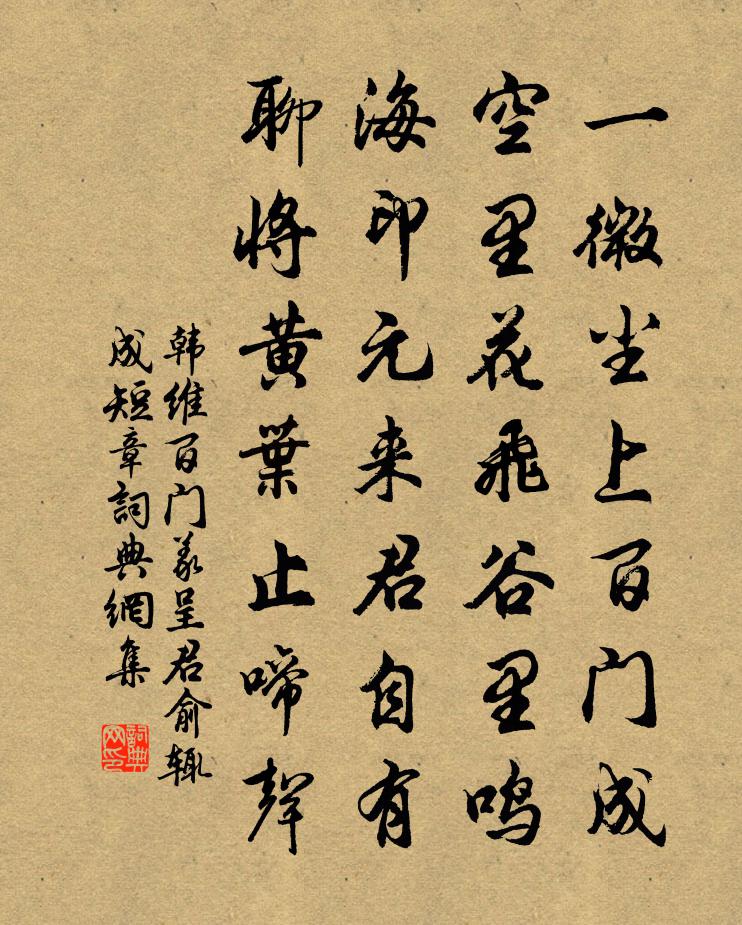 一微尘上百门成
空里花飛谷里鸣
海印元来君自有
聊将黄葉止啼聲
韩维百门義呈君俞辄
成短章詞典網集
詞典网印